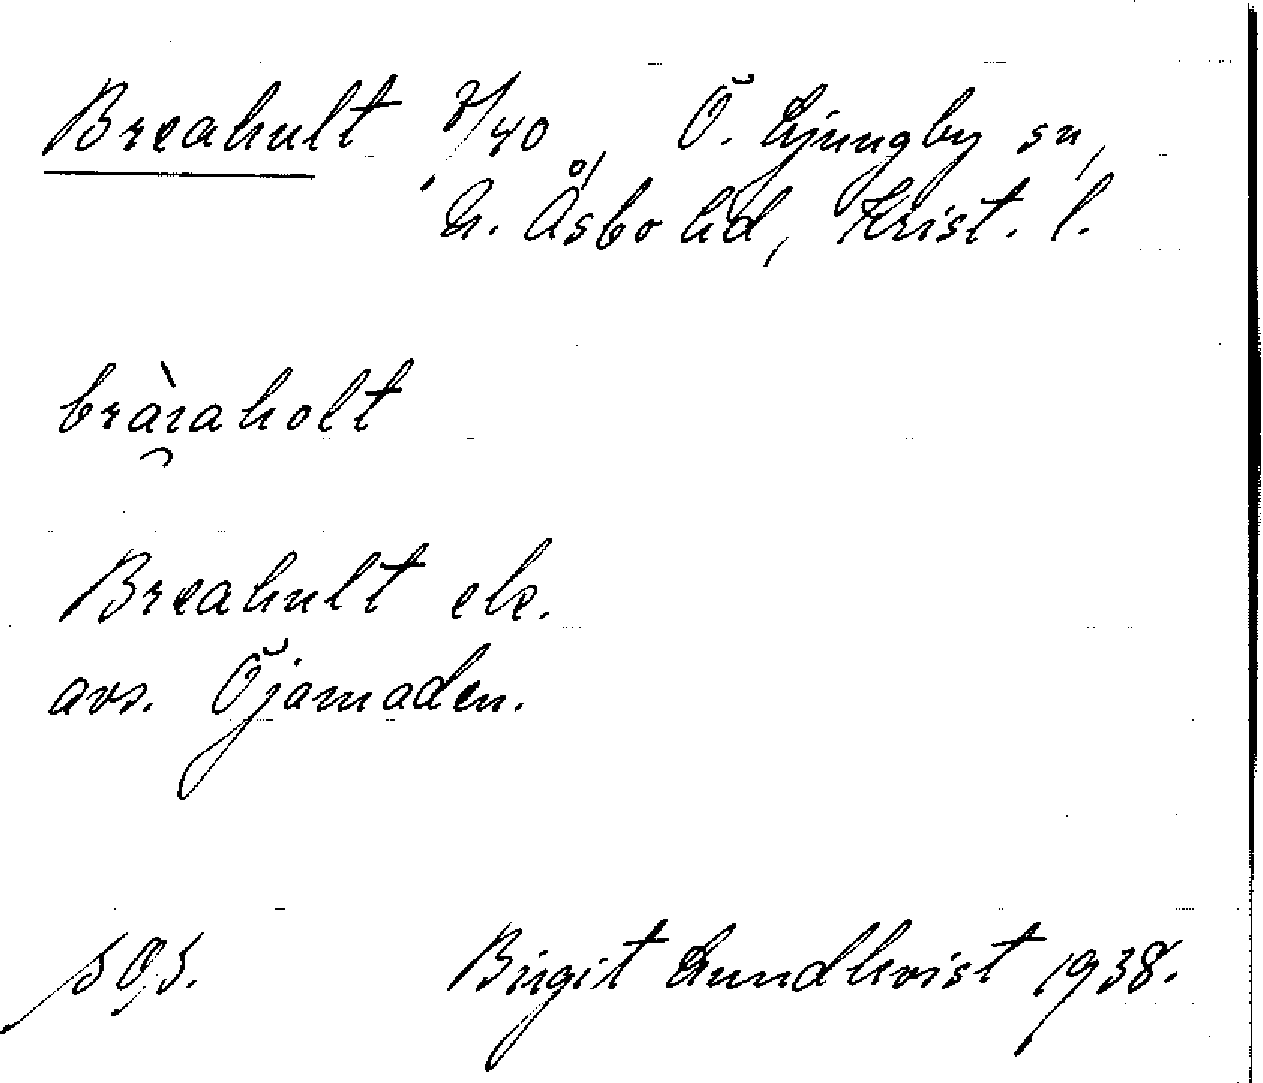 Breahult 7/40, Ö. Ljungby sn,
N. Åsbo hd, Krist. l.
bràraholt
Breahult ek.
avs. Öjamaden.
s 0,5. Birgit Lundkvist 1938.